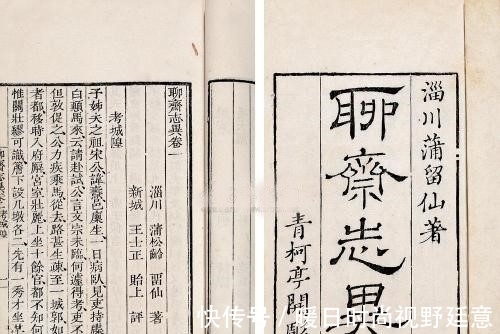 淄川蒲留仙著
聊齋志異
青柯亭開雕
聊齋志異卷一
淄川 蒲松齡 畱仙 著
新城 王士正 貽上 評
考城隍
子姊夫之祖宋公諱燾邑廩生一日病臥見吏持牒
白顛馬來云請赴試公言文宗未臨何遽得考吏不
但敦促之公力疾乘馬從去路甚生疎至一城郭如
者都移時入府廨宮室壯麗上坐十餘官都不知
惟關壯繆可識簷下設几墩各二先有一秀才坐其
快传号/暖日时尚视野廷意